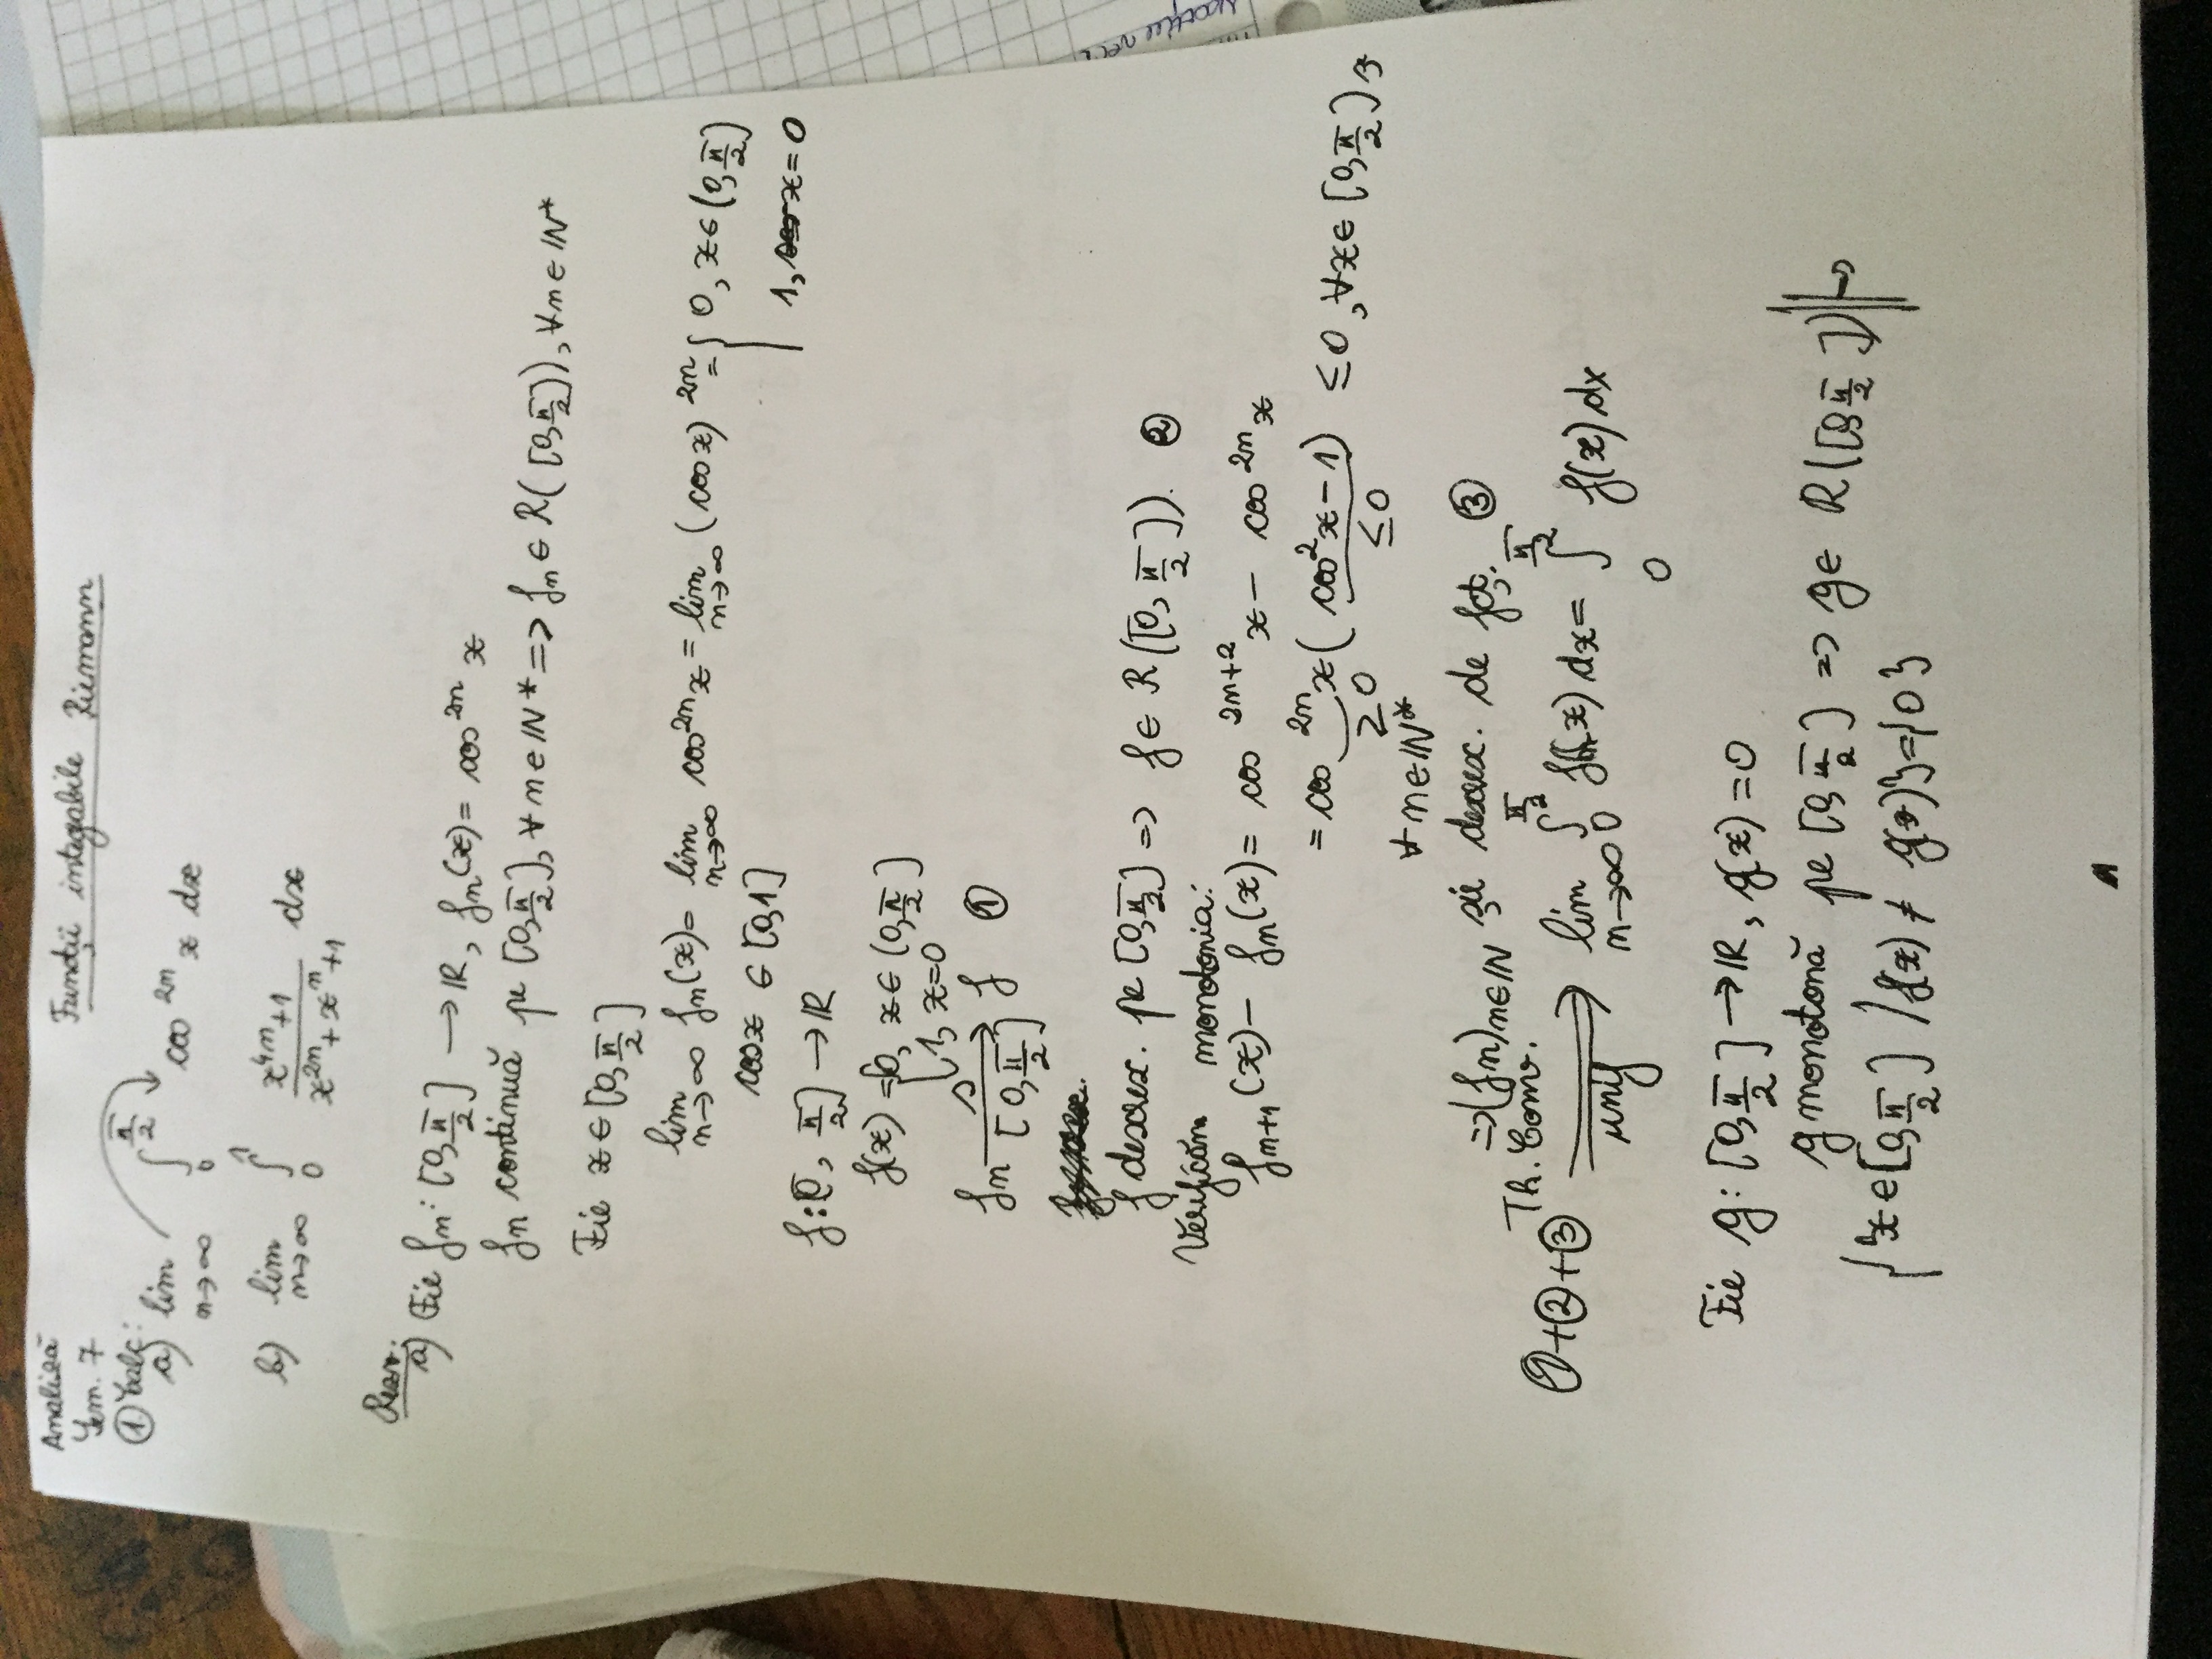 Analiză
Sem. 7
Funcții integabile Riemann
① Calc:
a) lim n→∞ ∫₀^{π/2} cos^{2n} x dx
b) lim n→∞ ∫₀^1 (x^{4n}+1)/(x^{2n}+x^n+1) dx
Rezv:
a) Fie fn: [0, π/2] → ℝ, fn(x) = cos^{2n} x
fn continuă pe [0, π/2], ∀ n ∈ ℕ* => fn ∈ R([0, π/2]), ∀ n ∈ ℕ*
Fie x ∈ [0, π/2]
lim n→∞ fn(x) = lim n→∞ cos^{2n} x = lim n→∞ (cos x)^{2n} = { 0, x ∈ (0, π/2]
1, x = 0
cos x ∈ [0,1]
f: [0, π/2] → ℝ
f(x) = { 0, x ∈ (0, π/2]
1, x=0
fn →^s_{[0, π/2]} f ①
f descresc. pe [0, π/2] => f ∈ R([0, π/2]). ②
Verificăm monotonia:
f_{n+1}(x) – fn(x) = cos^{2n+2} x – cos^{2n} x
= cos^{2n} x (cos² x – 1) ≤ 0, ∀ x ∈ [0, π/2],
≥ 0 ≤ 0
∀ n ∈ ℕ*
=> (fn)_{n∈ℕ} șir descresc. de fcț. ③
①+②+③ Th. Conv. unif => lim n→∞ ∫₀^{π/2} fn(x) dx = ∫₀^{π/2} f(x) dx
Fie g: [0, π/2] → ℝ, g(x) = 0
g monotonă pe [0, π/2] => g ∈ R([0, π/2]) =>
{x ∈ [0, π/2] / f(x) ≠ g(x)} = {0}
1